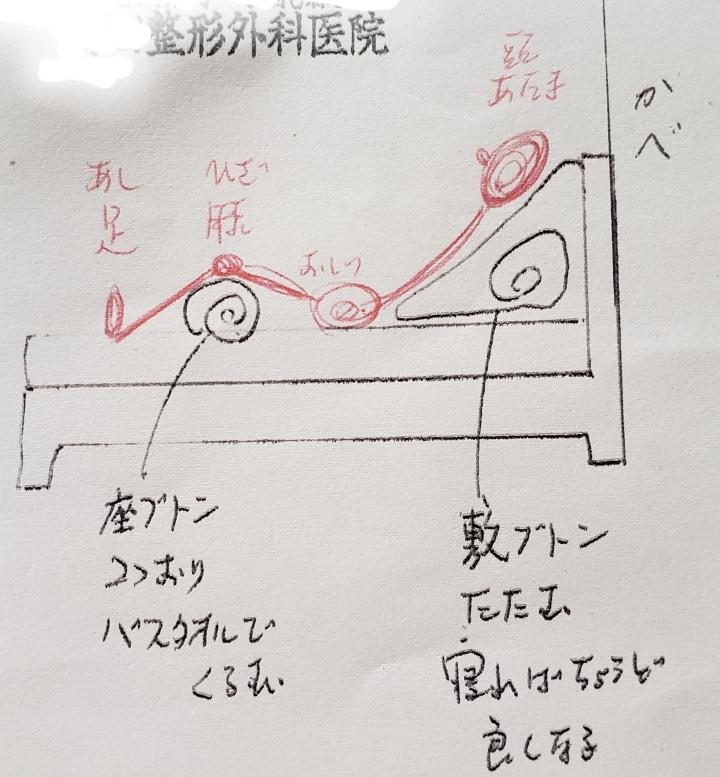 整形外科医院
頭
あたま
かべ
あし
足
ひざ
膝
おしり
座ブトン
2つおり
バスタオルで
くるむ
敷ブトン
たたむ
寝ればちょうど
良くなる